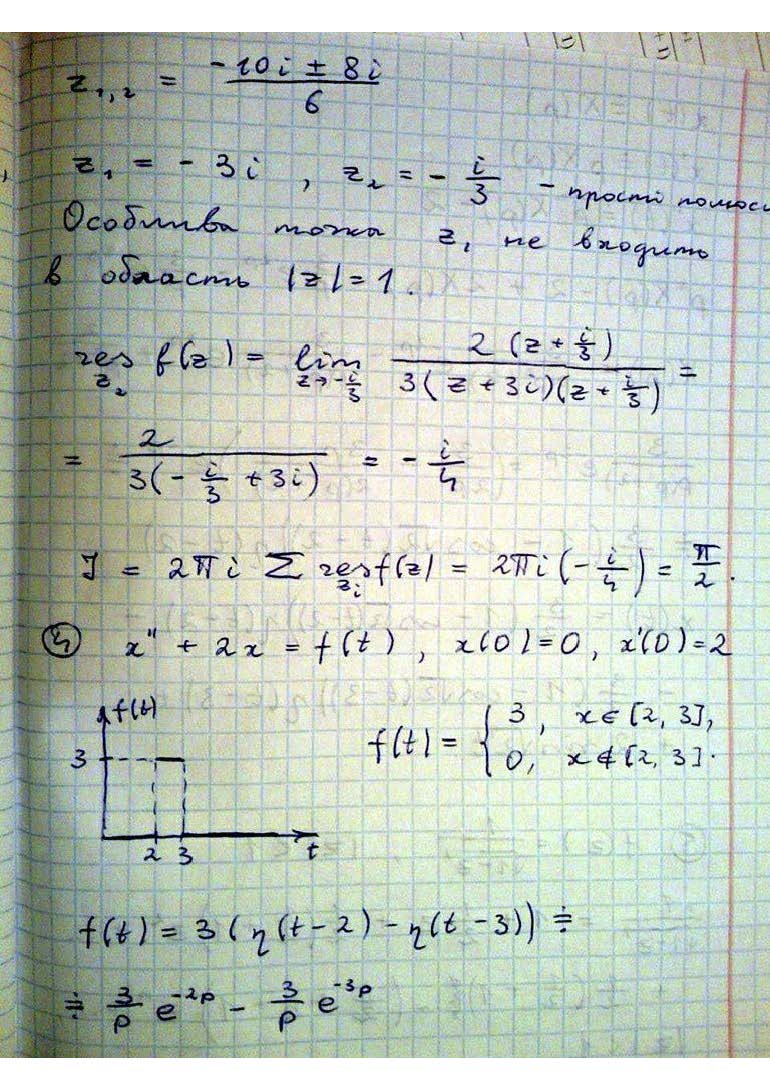 z₁,₂ = (-10i ± 8i)/6
z₁ = - 3i , z₂ = - i/3 - прості полюси
Особлива точка z₁ не входить
в область |z|=1.
res_{z₂} f(z) = lim_{z→-i/3} 2(z + i/3)/(3(z + 3i)(z + i/3)) =
= 2/(3(-i/3 + 3i)) = - i/4
J = 2πi Σ res_{zᵢ} f(z) = 2πi(-i/4) = π/2.
④ x'' + 2x = f(t) , x(0)=0, x'(0)=2
f(t)
f(t) = { 3, x∈[2, 3],
0, x∉[2, 3].
3
2 3 t
f(t) = 3(η(t-2) - η(t-3)) ≑
≑ 3/p e^{-2p} - 3/p e^{-3p}